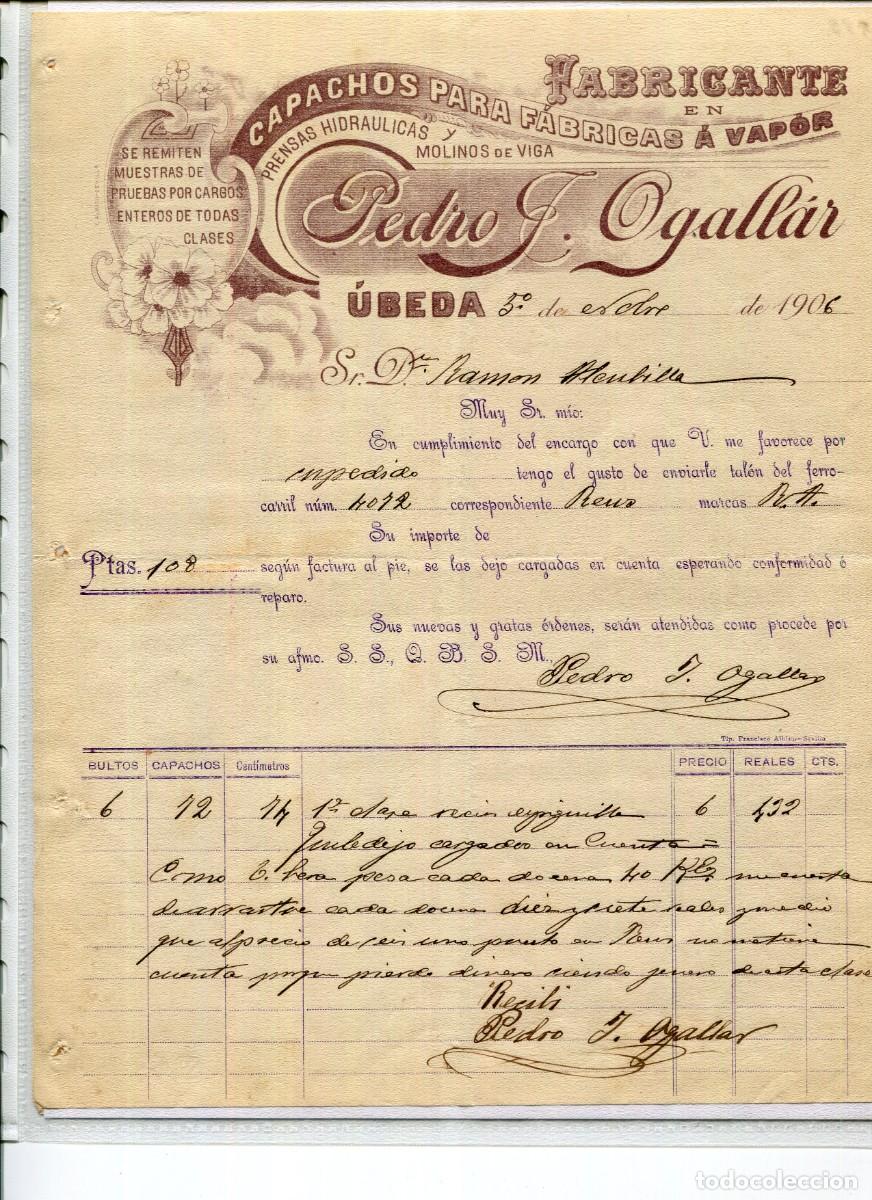 FABRICANTE
EN
CAPACHOS PARA FÁBRICAS Á VAPÓR
PRENSAS HIDRAULICAS Y
MOLINOS DE VIGA
SE REMITEN
MUESTRAS DE
PRUEBAS POR CARGOS
ENTEROS DE TODAS
CLASES
Pedro J. Ogallár
ÚBEDA 5º de de 1906
Sr. Dn Ramon Alcubilla
Muy Sr. mío:
En cumplimiento del encargo con que V. me favorece por
su pedido tengo el gusto de enviarle talón del ferro-
carril núm. 4072 correspondiente Reus marcas R. A.
Su importe de
Ptas. 108 según factura al pie, se las dejo cargadas en cuenta esperando conformidad ó
reparo.
Sus nuevas y gratas órdenes, serán atendidas como procede por
su afmo. S. S., Q. B. S. M.,
Pedro J. Ogallar
Tip. Francisco Sevilla
BULTOS CAPACHOS Centímetros PRECIO REALES CTS.
6 72 74 1ª clase recio 6 432
que le dejo cargados en Cuenta =
Como V. vera pesa cada docena 40 KG. me cuesta
de arrastre cada docena diez y siete reales y medio
que al precio de seis uno puesto en Reus no me tiene
cuenta porque pierdo dinero siendo genero de esta clase
Recibi
Pedro J. Ogallar
todocoleccion